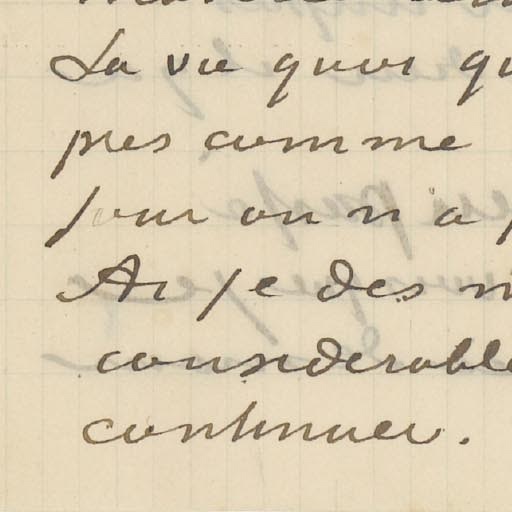 La vie quoi qu
pres comme
jour on n'a p
Ai je des m
considerable
continuer.